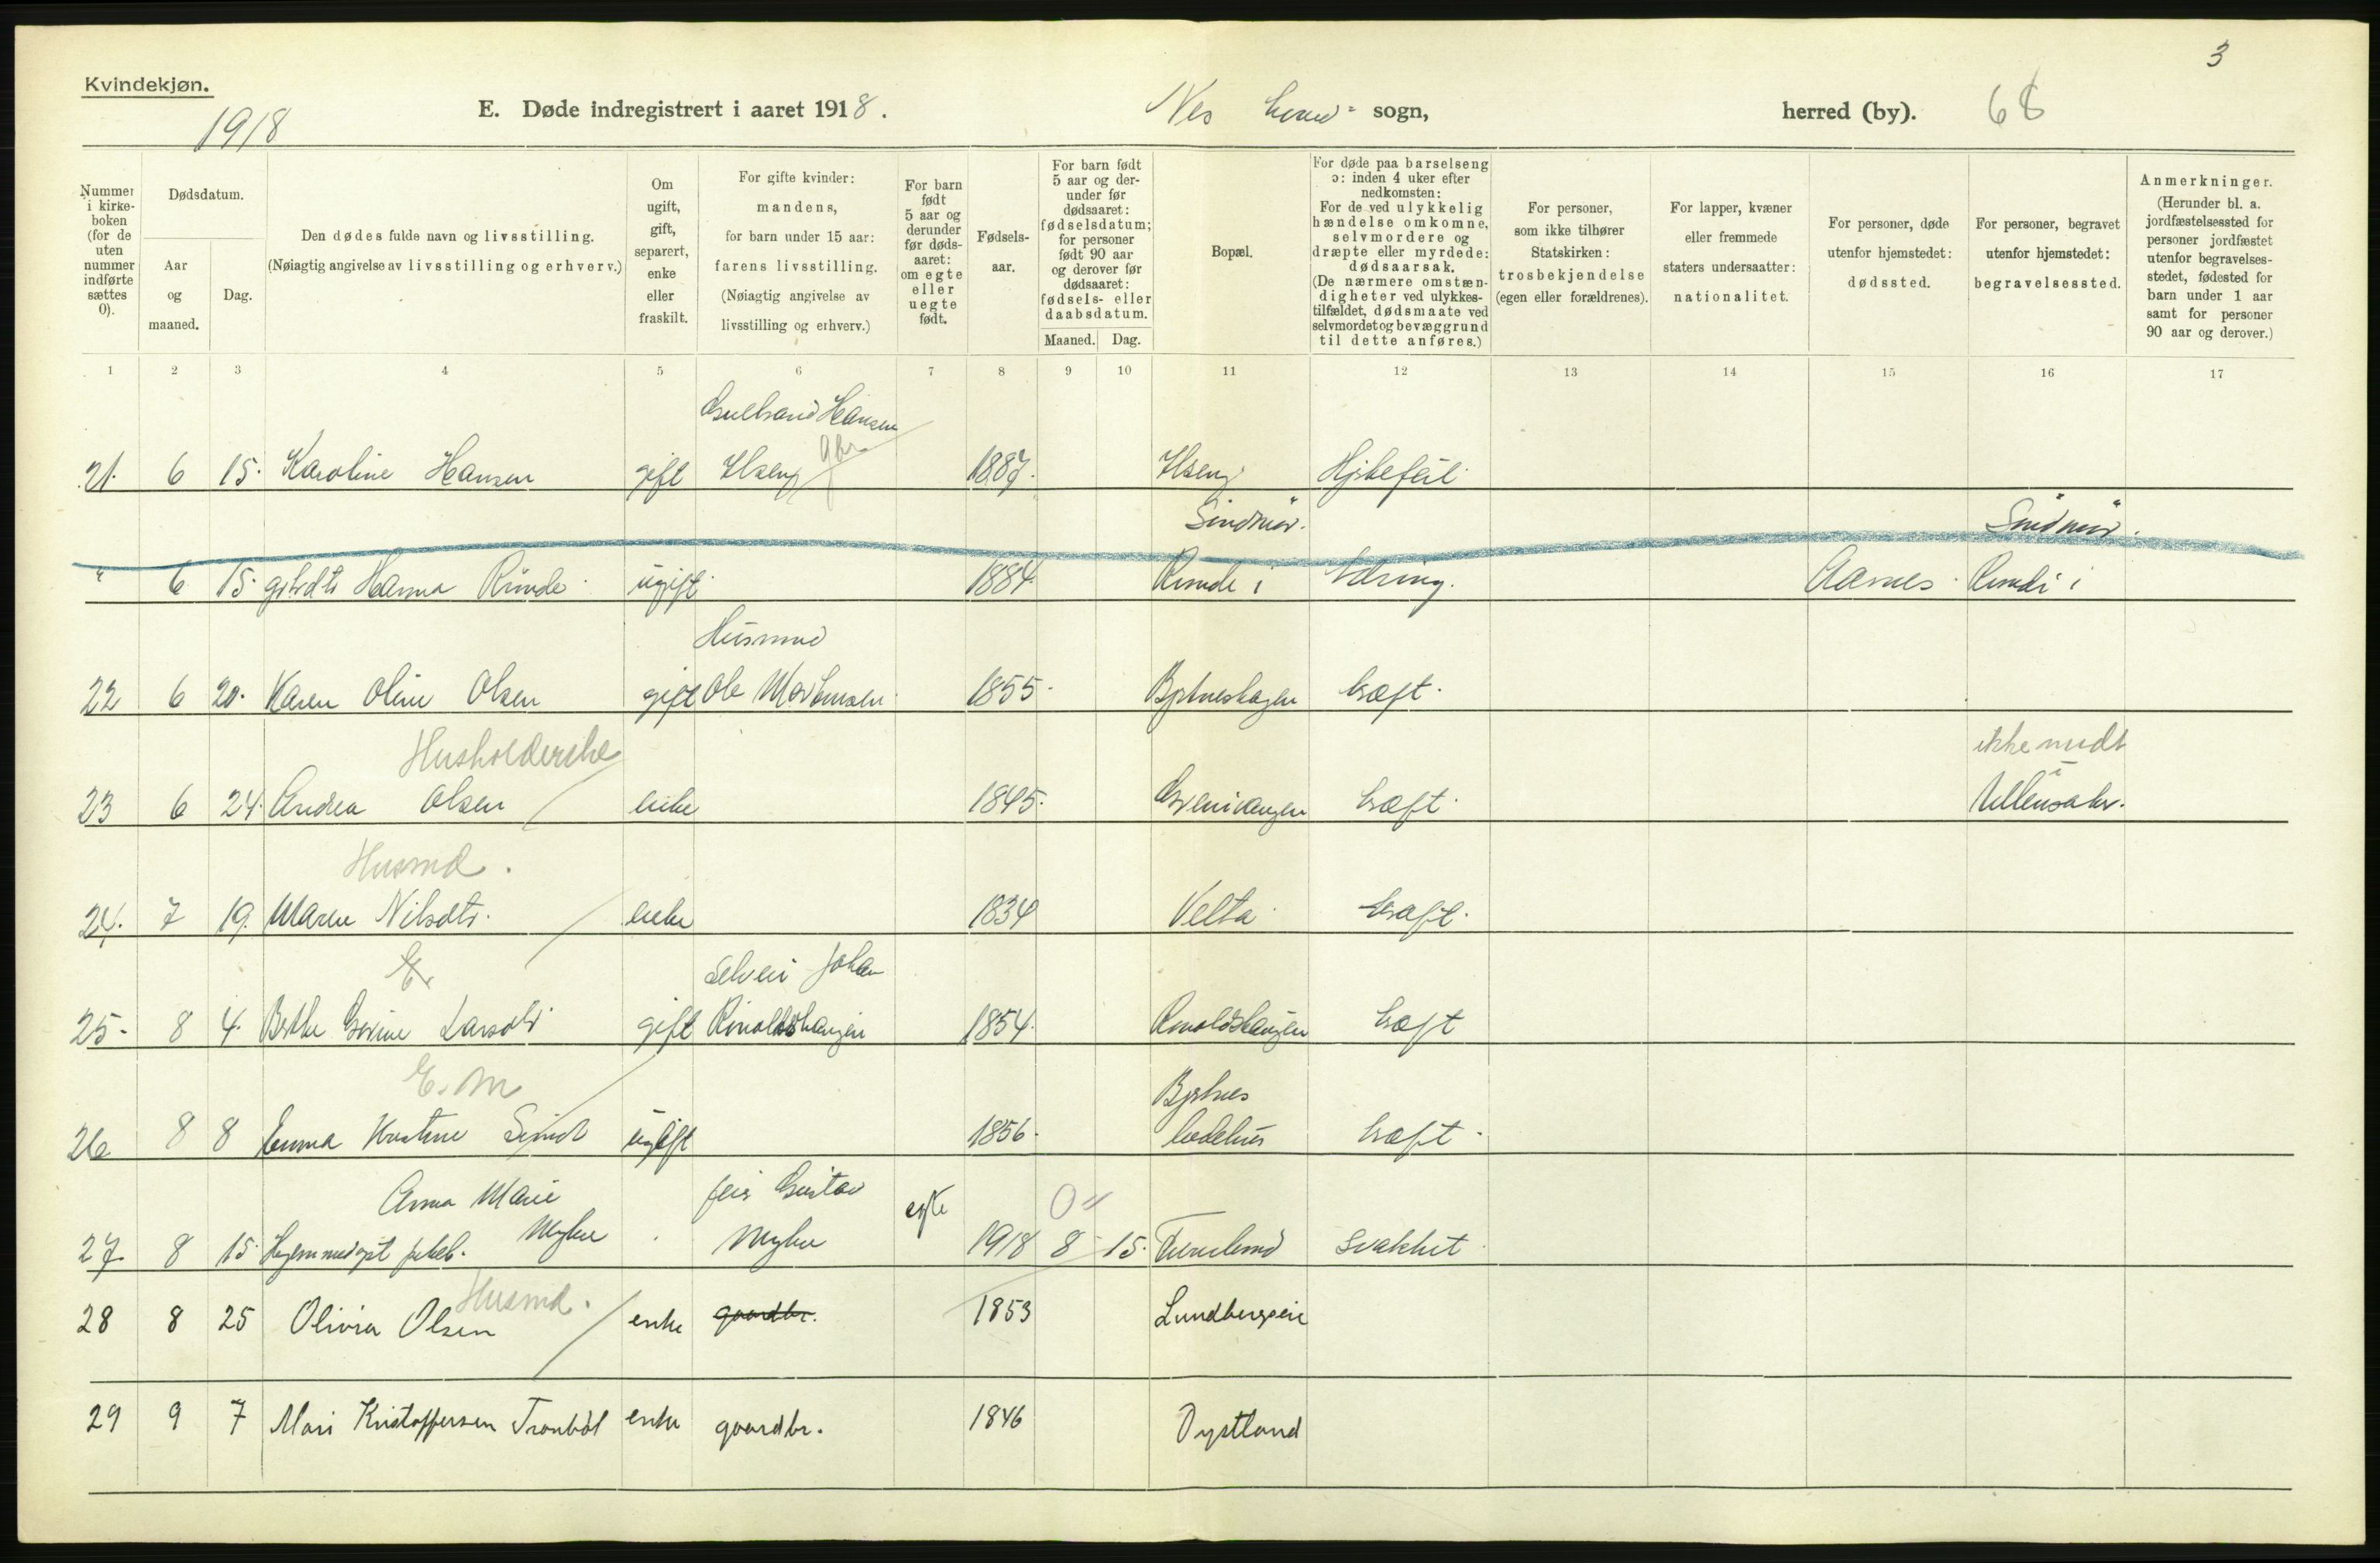 3
Kvindekjøn.
1918
E. Døde indregistrert i aaret 1918.
Nes
sogn,
herred (by).
68
Nummer i kirke-boken (for de uten nummer indførte sættes 0).
Dødsdatum.
Aar og maaned.
Dag.
Den dødes fulde navn og livsstilling.
(Nøiagtig angivelse av livsstilling og erhverv.)
Om ugift, gift, separert, enke eller fraskilt.
For gifte kvinder: mandens, for barn under 15 aar: farens livsstilling.
(Nøiagtig angivelse av livsstilling og erhverv.)
For barn født 5 aar og derunder før døds-aaret: om egte eller uegte født.
Fødsels-aar.
For barn født 5 aar og der-under før dødsaaret: fødselsdatum; for personer født 90 aar og derover før dødsaaret: fødsels- eller daabsdatum.
Maaned.
Dag.
Bopæl.
For døde paa barselseng ɔ: inden 4 uker efter nedkomsten:
For de ved ulykkelig hændelse omkomne, selvmordere og dræpte eller myrdede: dødsaarsak.
(De nærmere omstæn-digheter ved ulykkes-tilfældet, dødsmaate ved selvmordet og bevæggrund til dette anføres.)
For personer, som ikke tilhører Statskirken: trosbekjendelse (egen eller forældrenes).
For lapper, kvæner eller fremmede staters undersaatter: nationalitet.
For personer, døde utenfor hjemstedet: dødssted.
For personer, begravet utenfor hjemstedet: begravelsessted.
Anmerkninger.
(Herunder bl. a. jordfæstelsessted for personer jordfæstet utenfor begravelses-stedet, fødested for barn under 1 aar samt for personer 90 aar og derover.)
1 2 3 4 5 6 7 8 9 10 11 12 13 14 15 16 17
Gulbrand Hansen
21. 6 15. Karoline Hansen gift Ilseng 1887. Ilseng Hjertefeil
Sindnør. Sindnør.
" 6 15. Hanna Runde ugift 1884. Runde i Tæring. Aarnes. Runde i
Husmand
22 6 20. Karen Oline Olsen gift Ole 1855. Kræft.
Husholderske ikke nedt
23 6 24. Andrea Olsen enke 1845. Kræft. Ullensaker.
Husmd.
24. 7 19. Maren Nilsdtr. enke 1834 Velta Kræft.
E. Selveier Johan
25. 8 4. Berthe Larsdtr gift 1854. Kræft
E. M Bjertnes
26 8 8 Emma ugift 1856. Kræft.
Anna Marie Gustav egte 0
27 8 15. Hjemmedøpt Myhre Myhre 1918 8 15. Svakhet
Husmd.
28 8 25 Olivia Olsen enke gaardbr. 1853 Lundbergseie
29 9 7 Mari Kristoffersen Tronbøl enke gaardbr. 1846 Dystland